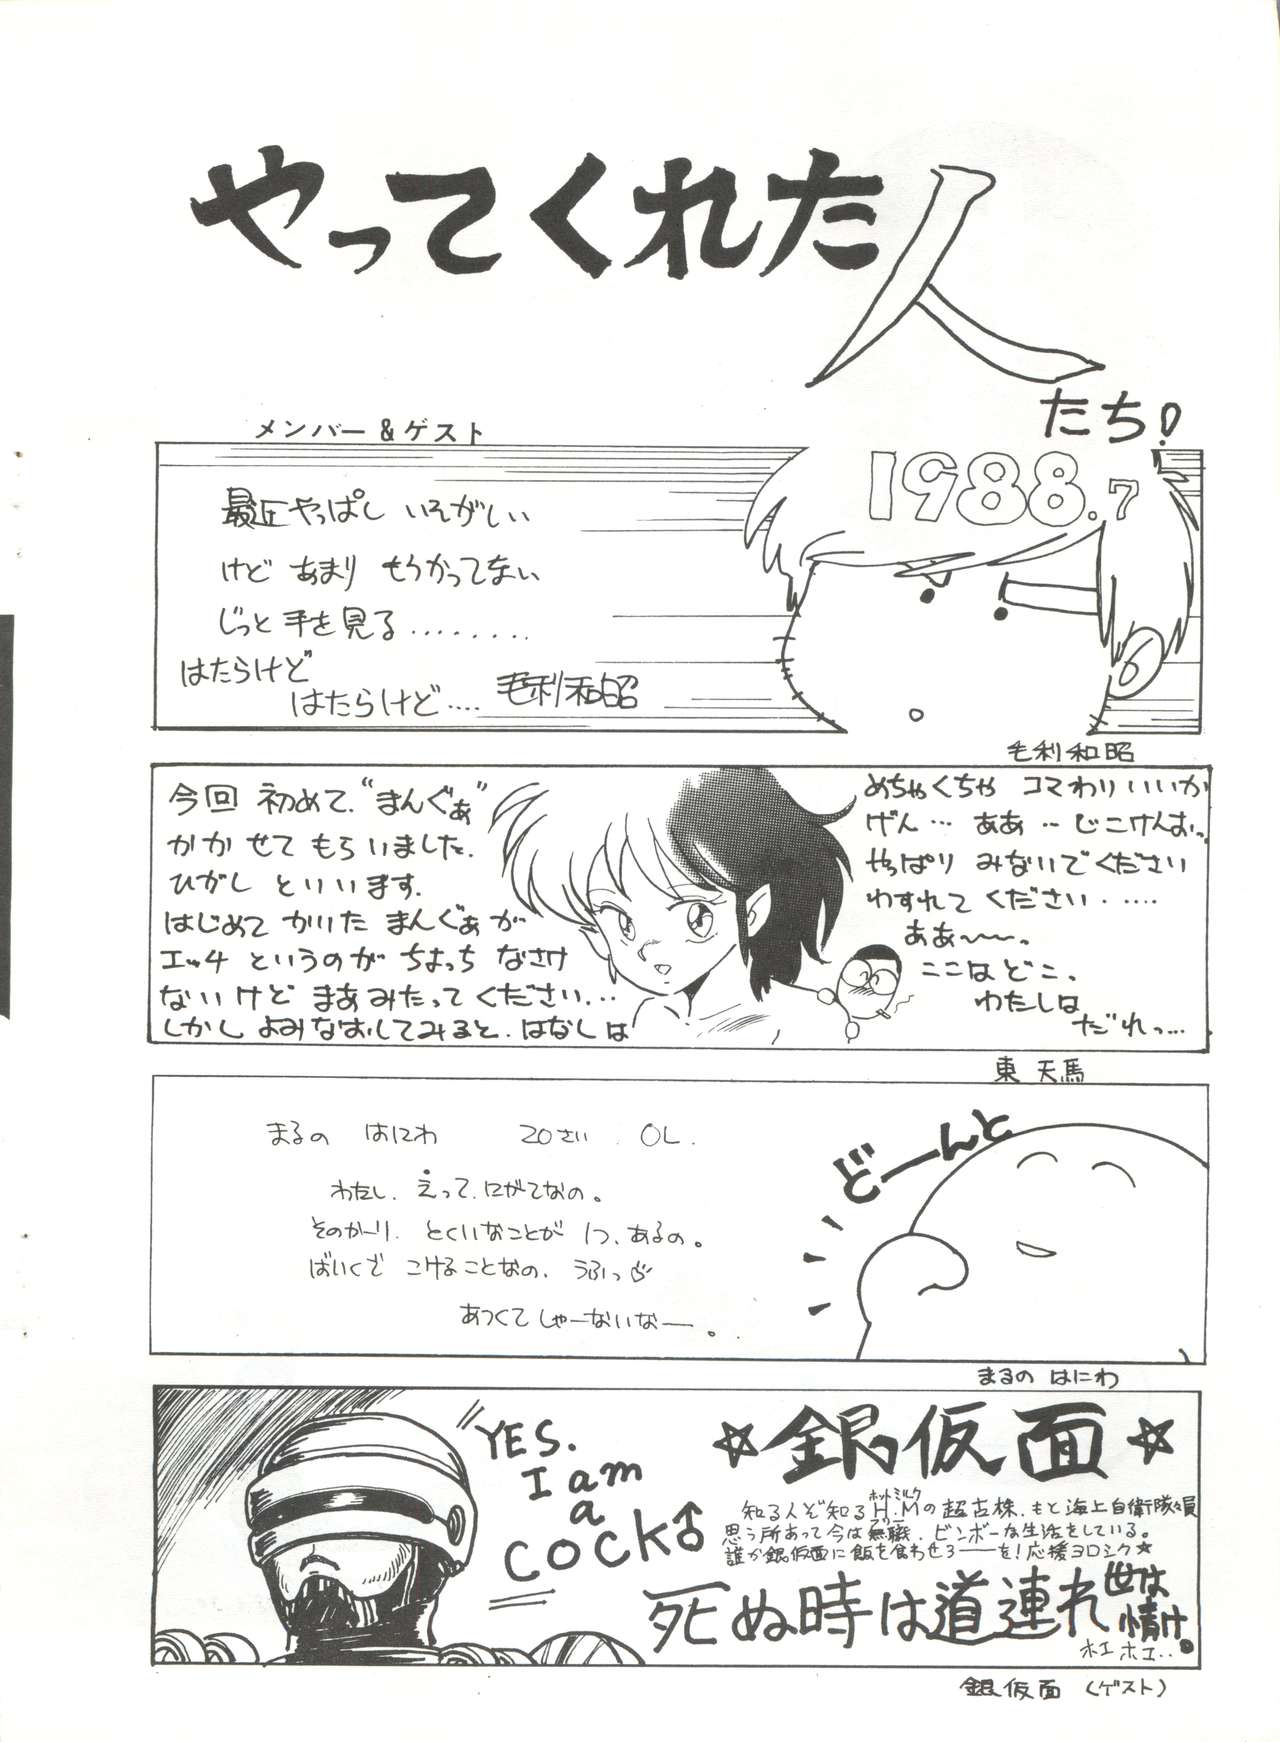 やってくれた人
たち!
メンバー&ゲスト
1988.7
最近やっぱし いそがしい
けど あまり もうかってない
じっと 手を 見る........
はたらけど
はたらけど.... 毛利和昭
毛利和昭
今回 初めて、“まんぐぁ”
かかせて もらいました.
ひがし といいます.
はじめて かいた まんぐぁが
エッチ というのが ちょっち なさけ
ないけど まあみたってください...
しかし よみなおしてみると、はなしは
めちゃくちゃ コマわりいいか
げん… ああ‥ じこけんおっ
やっぱり みないでください
わすれて ください......
ああ〜〜。
ここはどこ、
わたしは
だれっ...
東 天馬
まるの はにわ 20さい. OL.
わたし. えって. にがてなの。
そのかーり. とくいなことが 1つ、あるの。
ばいくで こけることなの. うふっ♡
あつくてしゃーないなー。
どーんと
まるの はにわ
YES.
I am
a
COCK♂
☆銀仮面☆
ホットミルク
知る人ぞ知るH.Mの超古株.もと海上自衛隊々員
フリー
思う所あって今は無職.ビンボーな生活をしている。
誰か銀仮面に飯を食わせろーーを!応援ヨロシク★
死ぬ時は道連れ 世は
情け。
ホエ ホエ..
銀仮面 (ゲスト)